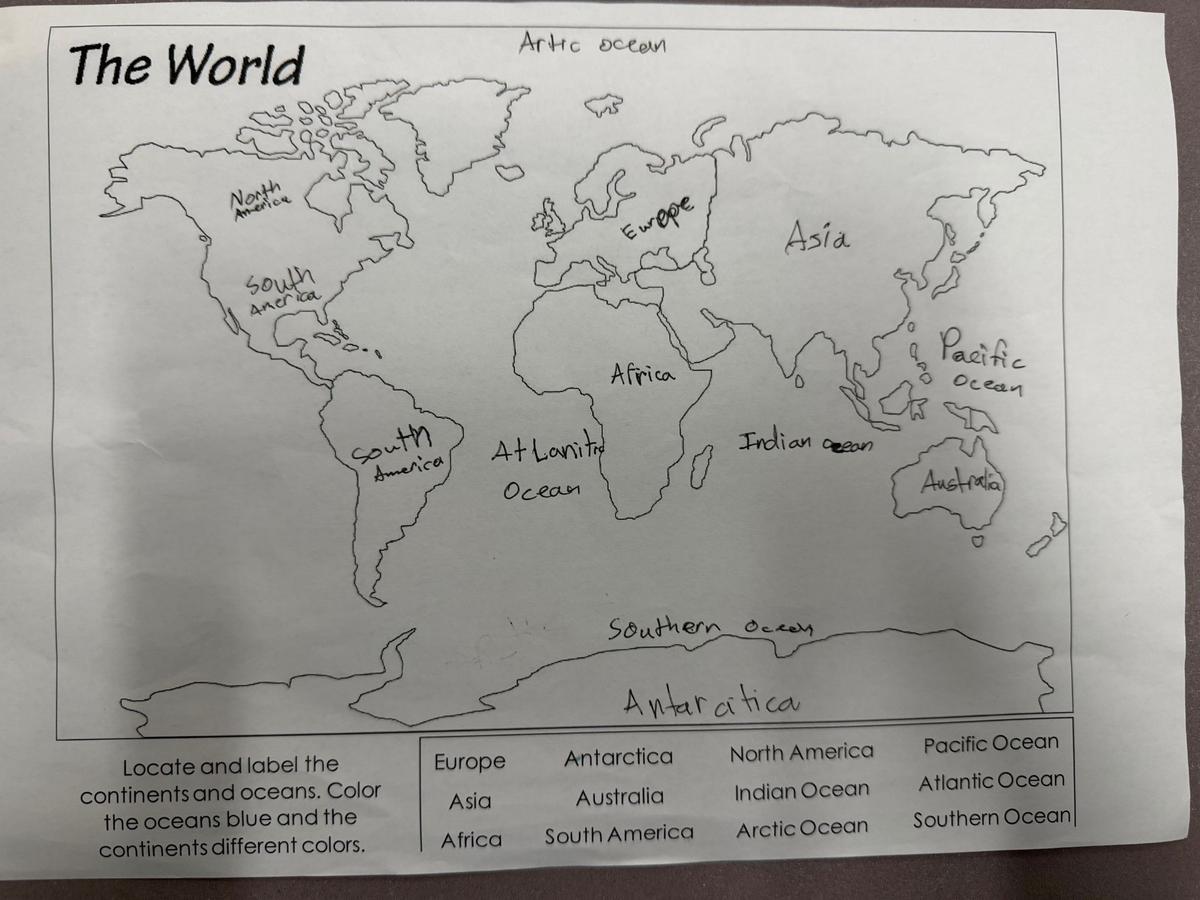 The World
Artic ocean
North
America
Europe
Asia
South
America
Africa
Pacific
ocean
South
America
Atlanitc
Ocean
Indian ocean
Australia
Southern Ocean
Antarcitica
Locate and label the
continents and oceans. Color
the oceans blue and the
continents different colors.
Europe Antarctica North America Pacific Ocean
Asia Australia Indian Ocean Atlantic Ocean
Africa South America Arctic Ocean Southern Ocean